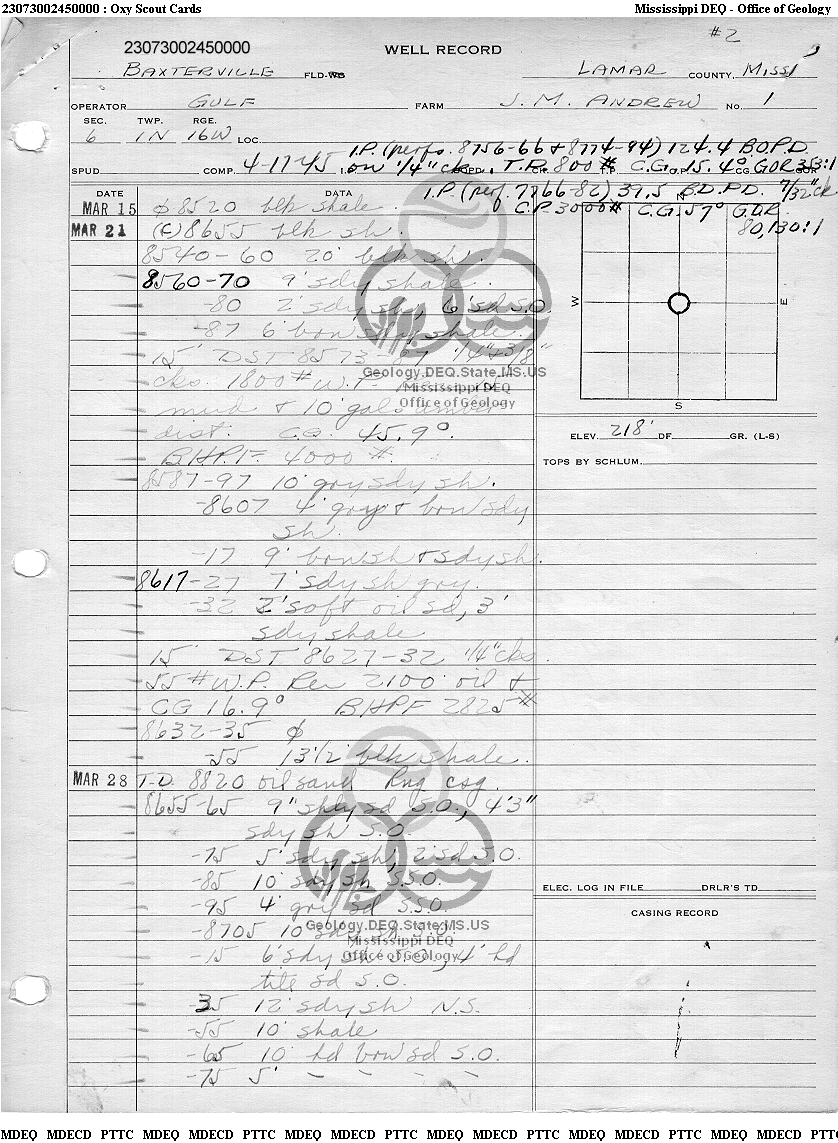 23073002450000 : Oxy Scout Cards Mississippi DEQ - Office of Geology
#2
23073002450000 WELL RECORD
BAXTERVILLE FLD-WS LAMAR COUNTY, MISS
OPERATOR GULF FARM J. M. ANDREW NO. 1
SEC. TWP. RGE.
6 1N 16W LOC.
I.P. (perfs. 8756-66 & 8774-94) 124.4 B.O.P.D.
SPUD COMP. 4-17-45 on 1/4" ck., T.P. 800 # C.G. 15.4° GOR 353:1
DATE DATA I.P. (perf. 7766-82) 39.5 B.D.P.D. 7/32" ck
MAR 15 ϕ 8520 blk shale. C.P. 3000# C.G. 57° G.O.R.
MAR 21 (C) 8655 blk sh. 80,130:1
8540-60 20' blk sh.
8560-70 9' sdy shale.
-80 2' sdy sh, 6' sd S.O.
-87 6' bown shale.
W E
15" DST 8573-87 1/4" & 3/8"
Geology.DEQ.State.MS.US
cks. 1800 # W.P.
Mississippi DEQ
Office of Geology
mud & 10 gals amber
S
dist. C.G. 45.9°.
ELEV. 218' DF. GR. (L-S)
B.H.P.F. 4000 #.
TOPS BY SCHLUM.
8587-97 10' gry sdy sh.
-8607 4' gry & bown sdy
sh.
-17 9' bown sh & sdy sh.
8617-27 7' sdy sh gry.
-32 2' soft oil sd, 3'
sdy shale
15" DST 8627-32 1/4" cks.
55 # W.P. Rec 2100' oil &
CG 16.9° BHPF 2825 #
8632-35 ϕ
-55 13 1/2' blk shale.
MAR 28 T.D. 8820 oil sand Rng csg.
8655-65 9" shly sd S.O., 4'3"
sdy sh S.O.
-75 5' sdy sh, 2' sd S.O.
-85 10' sdy sh S.S.O.
ELEC. LOG IN FILE DRLR'S TD
-95 4' gry sd S.S.O.
CASING RECORD
-8705 10' sdy sh S.O.
Geology.DEQ.State.MS.US
Mississippi DEQ
-15 6' sdy sh S.O., 4' hd
Office of Geology
tite sd S.O.
-35 12' sdy sh N.S.
-55 10' shale
-65 10' hd bown sd S.O.
-75 5' - - - -
MDEQ MDECD PTTC MDEQ MDECD PTTC MDEQ MDECD PTTC MDEQ MDECD PTTC MDEQ MDECD PTTC MDEQ MDECD PTT